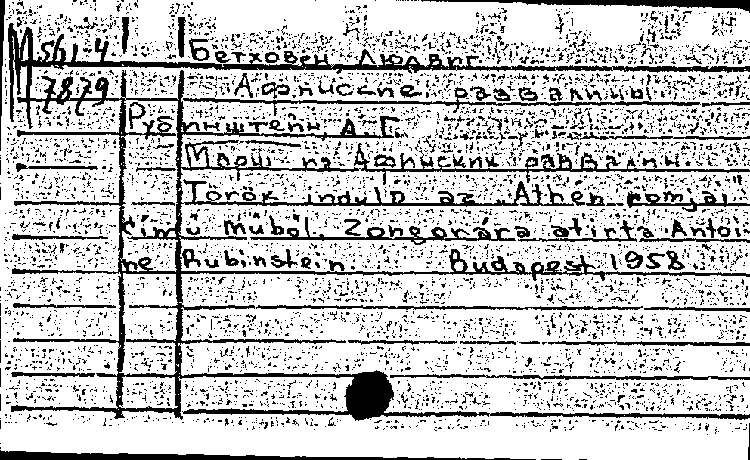 М 561-4 Бетховен, Людвиг.
7879 Афинские развалины.
Рубинштейн, А. Г.
Марш из Афинских развалин.
Török induló az "Athén romjai"
címü müböl. Zongorára átirta Antoi-
ne Rubinstein. Budapest, 1958.